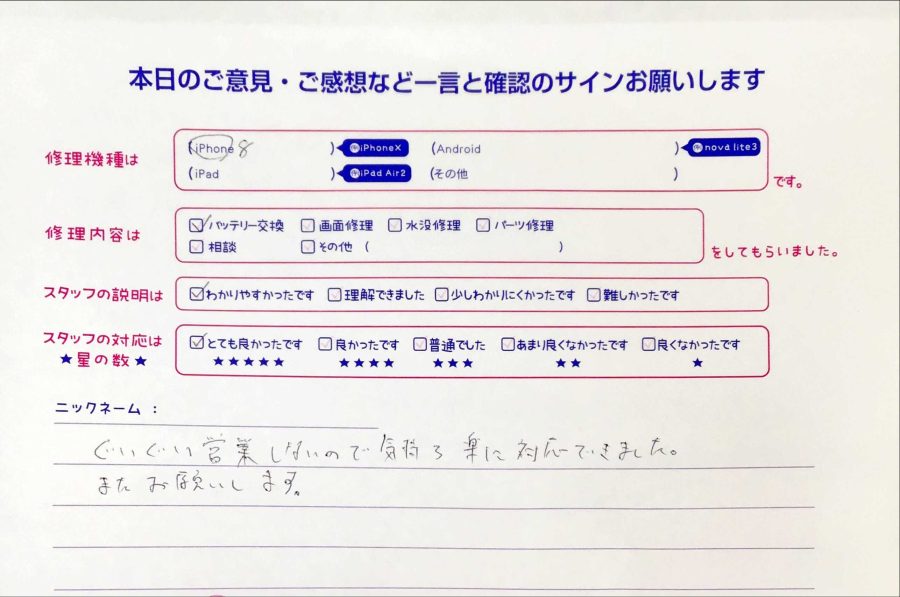 本日のご意見・ご感想など一言と確認のサインお願いします
修理機種は (iPhone 8 ) 例iPhoneX (Android ) 例nova lite3
(iPad ) 例iPad Air2 (その他 ) です。
修理内容は バッテリー交換 画面修理 水没修理 パーツ修理
相談 その他 ( ) をしてもらいました。
スタッフの説明は わかりやすかったです 理解できました 少しわかりにくかったです 難しかったです
スタッフの対応は とても良かったです 良かったです 普通でした あまり良くなかったです 良くなかったです
★星の数★ ★★★★★ ★★★★ ★★★ ★★ ★
ニックネーム：
ぐいぐい営業しないので気持ち楽に対応できました。
またお願いします。